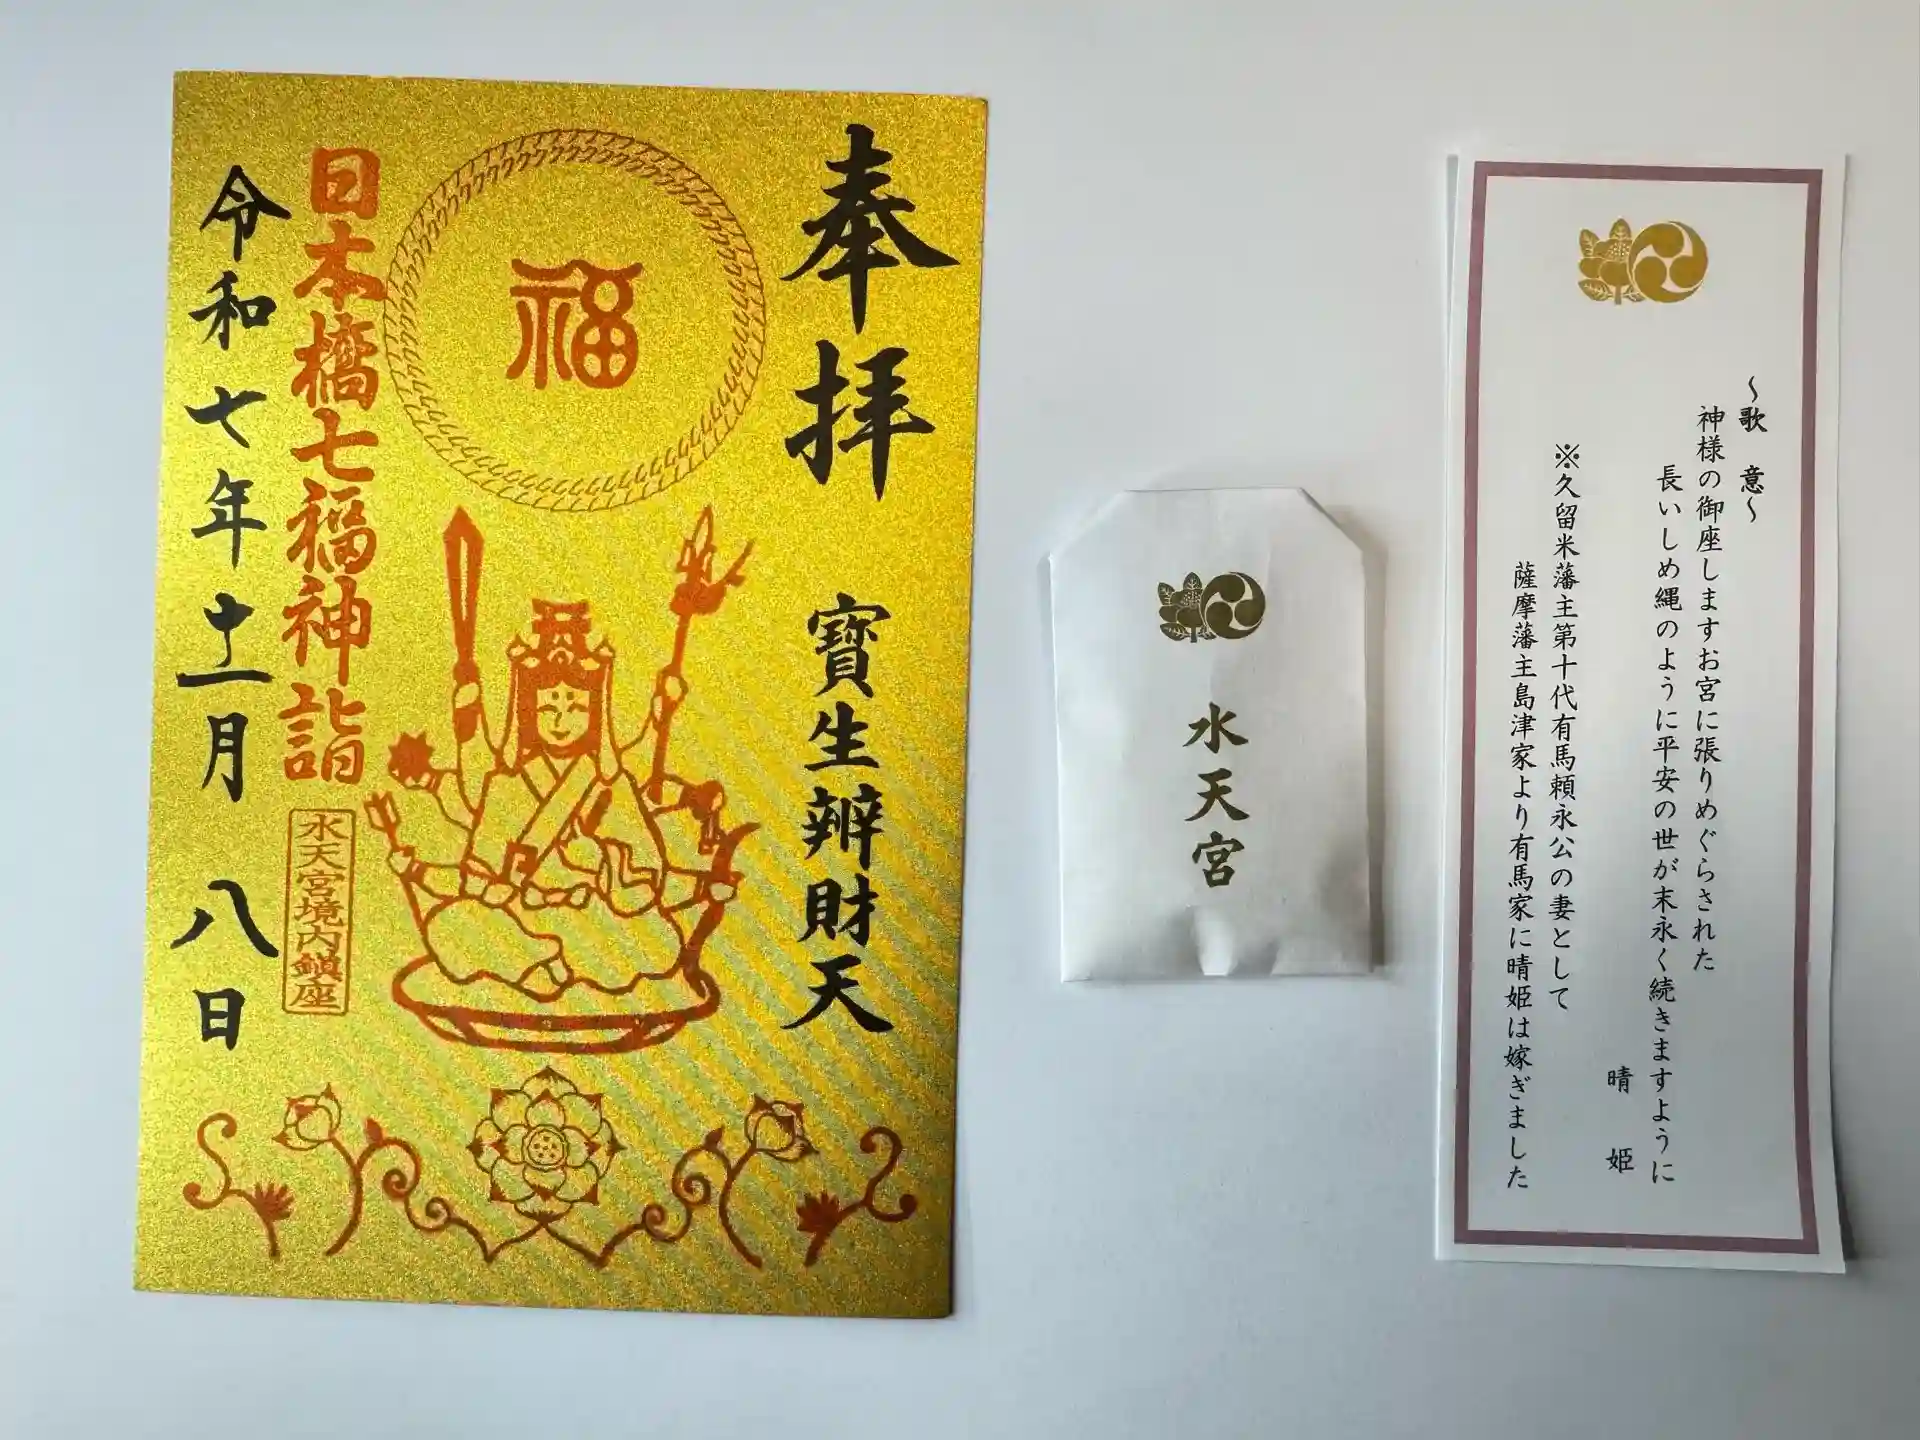 奉拝
寶生辨財天
福
日本橋七福神詣
水天宮境内鎮座
令和七年十一月八日
水天宮
~歌 意~
神様の御座しますお宮に張りめぐらされた
長いしめ縄のように平安の世が末永く続きますように
晴 姫
※久留米藩主第十代有馬頼永公の妻として
薩摩藩主島津家より有馬家に晴姫は嫁ぎました